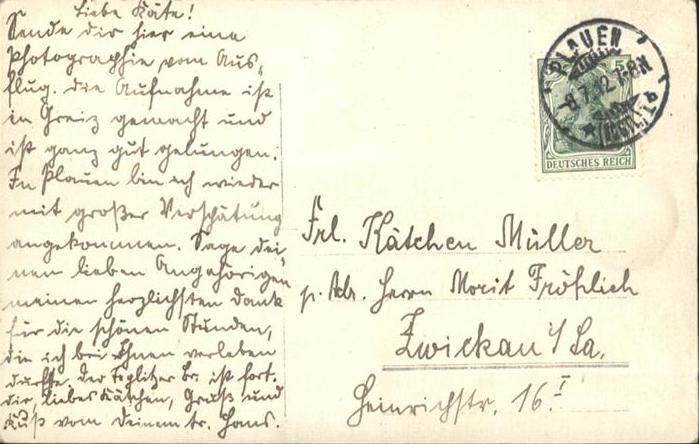 Liebe Käte!
Sende dir hier eine
Photographie vom Aus-
flug. Die Aufnahme ist
in Greiz gemacht und
ist ganz gut gelungen.
In Plauen bin ich wieder
mit großer Verspätung
angekommen. Sage dei-
nen lieben Angehörigen
meinen herzlichsten Dank
für die schönen Stunden,
die ich bei Ihnen verleben
durfte. Der Br. ist fort.
Dir, liebes Kätchen, Gruß und
Kuß vom Deinem tr. Hans.
PLAUEN
8.7.12.7-8N
(VOGTL.)
5
DEUTSCHES REICH
Frl. Kätchen Müller
p. Adr. Herrn Morit Fröhlich
Zwickau i/Sa.
Heinrichstr. 16 I